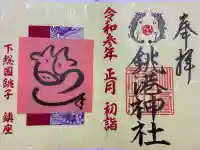 奉拝
銚港神社
令和参年 正月 初詣
下総國銚子 鎮座